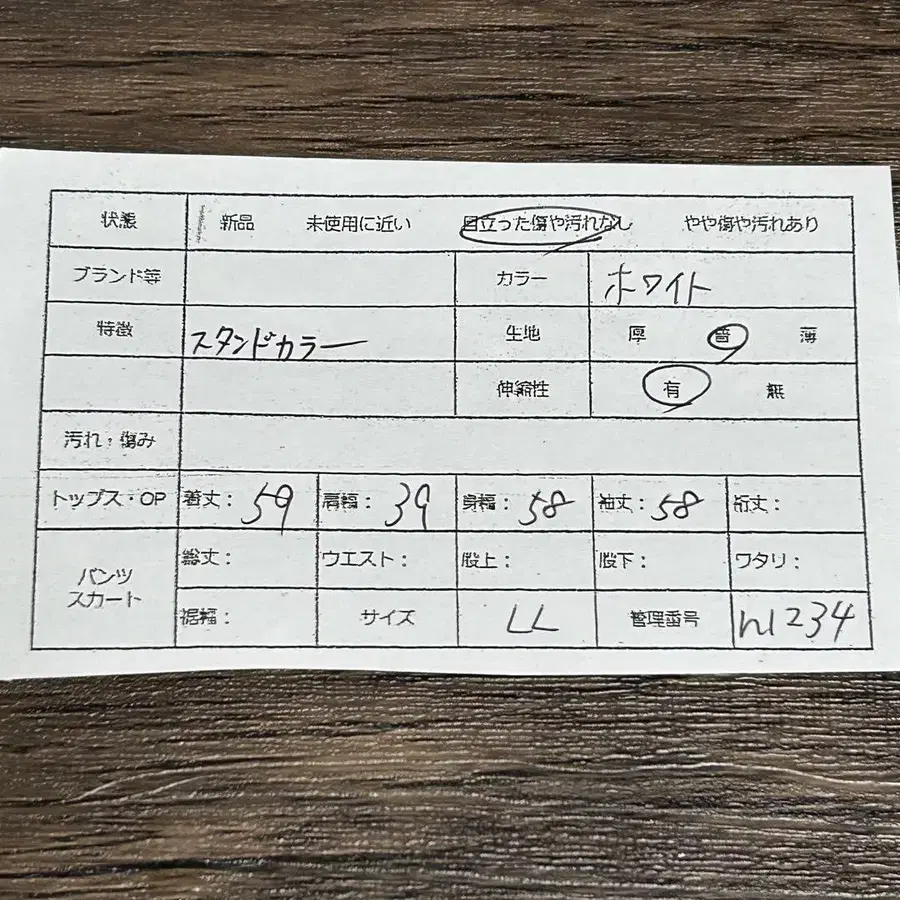 状態 新品 未使用に近い 目立った傷や汚れなし やや傷や汚れあり
ブランド等 カラー ホワイト
特徴 スタンドカラー 生地 厚 普 薄
伸縮性 有 無
汚れ・傷み
トップス・OP 着丈: 59 肩幅: 39 身幅: 58 袖丈: 58 裄丈:
パンツ スカート 総丈: ウエスト: 股上: 股下: ワタリ:
裾幅: サイズ LL 管理番号 h1234